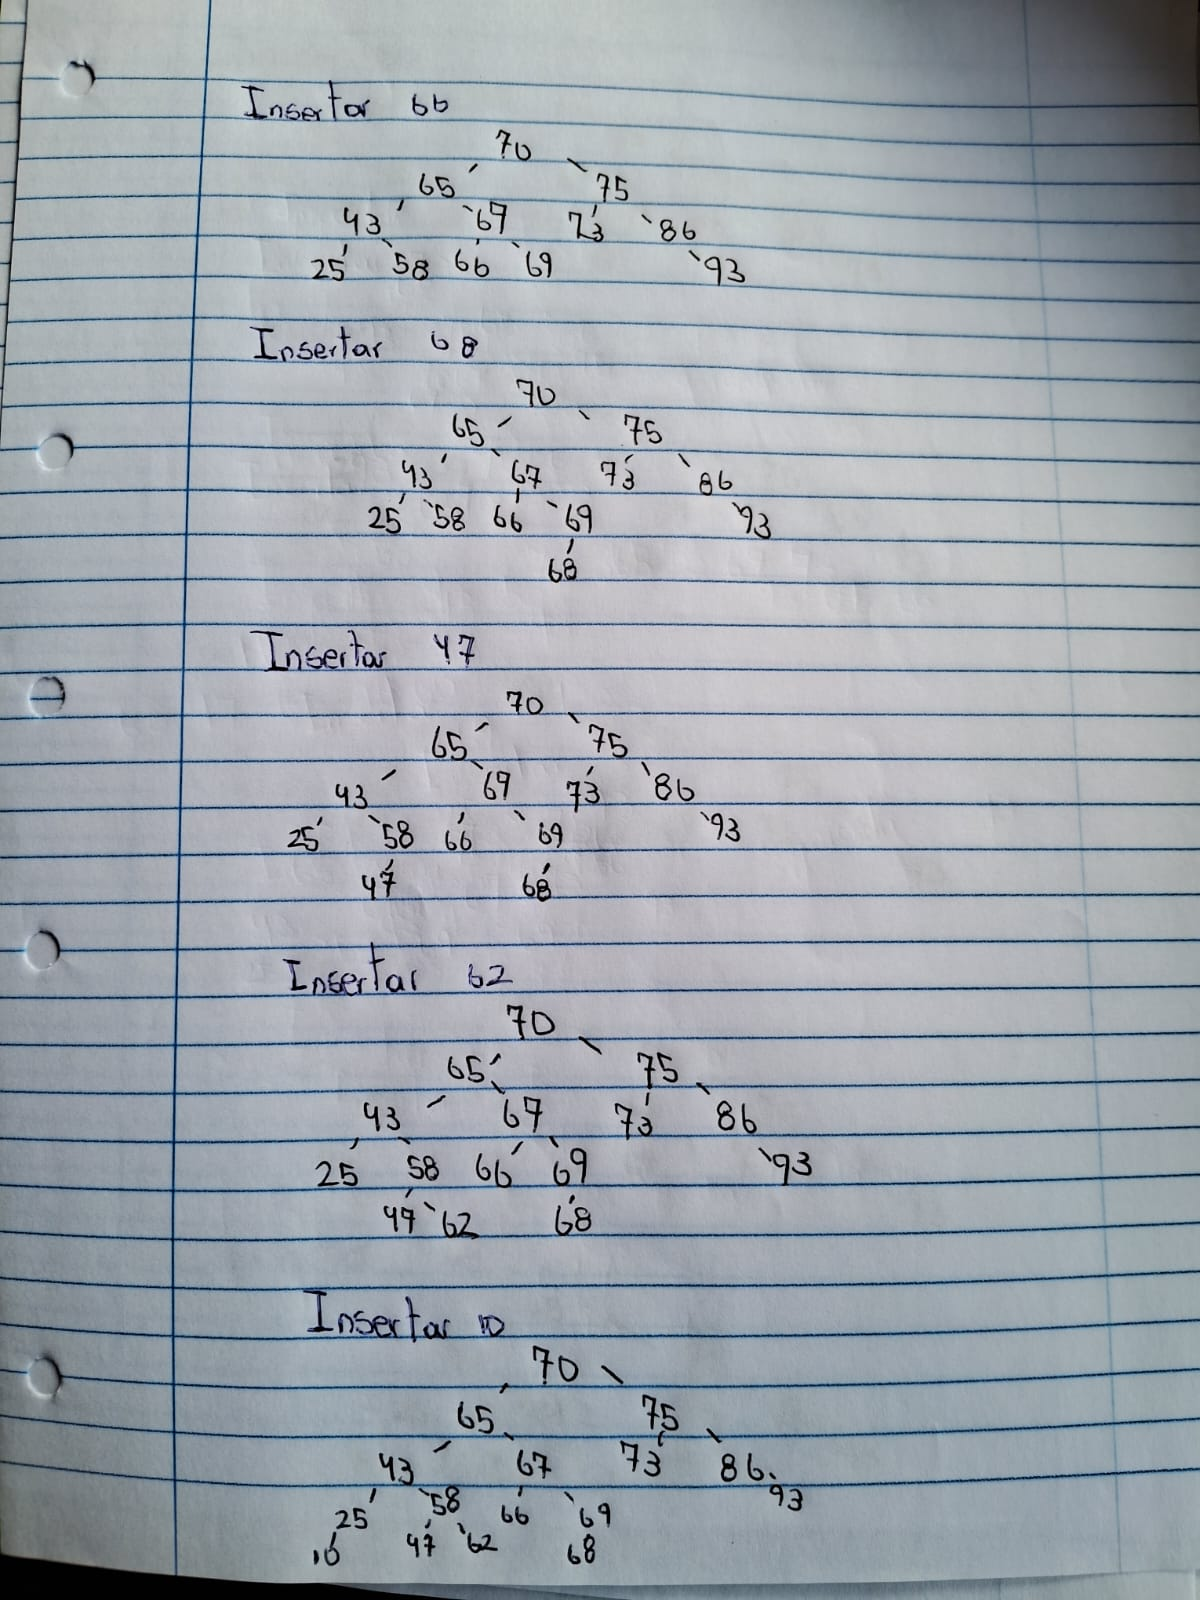 Insertar 66
70
65 75
43 67 73 86
25 58 66 69 93
Insertar 68
70
65 75
43 67 73 86
25 58 66 69 93
68
Insertar 47
70
65 75
43 69 73 86
25 58 66 69 93
47 68
Insertar 62
70
65 75
43 67 73 86
25 58 66 69 93
47 62 68
Insertar 10
70
65 75
43 67 73 86
25 58 66 69 93
10 47 62 68